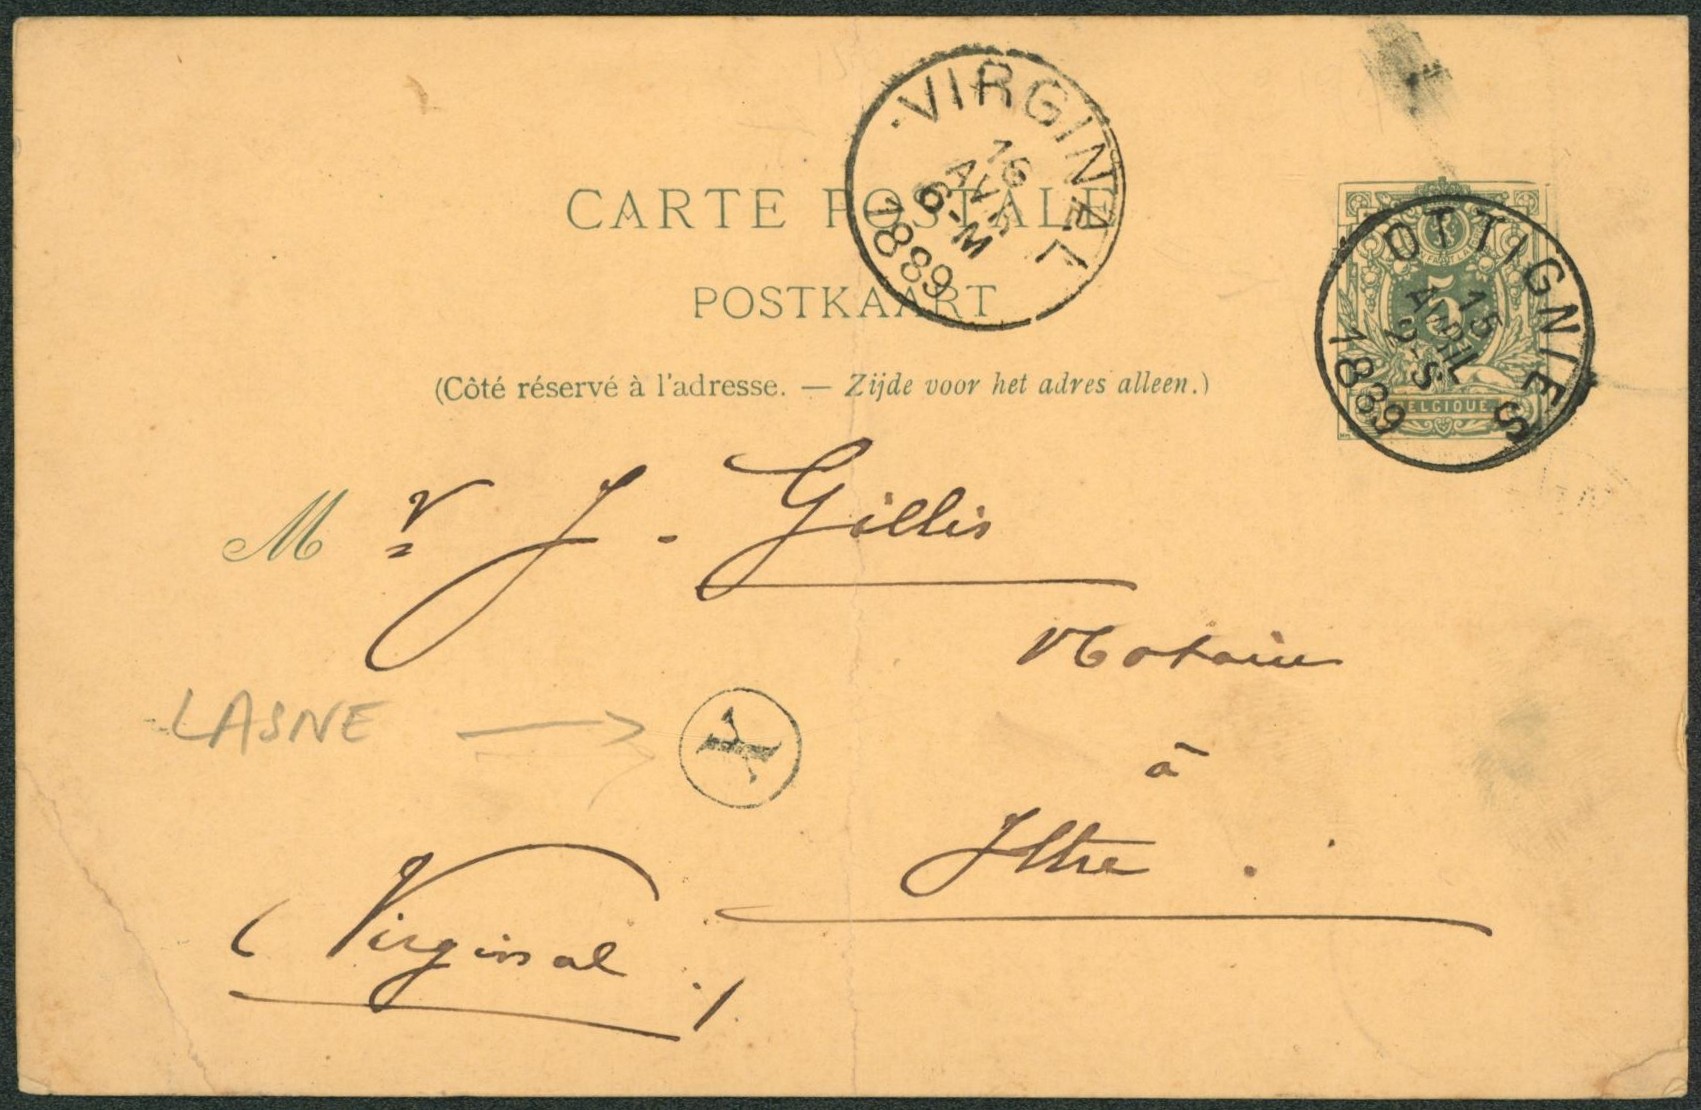 VIRGINAL
16
AVR
6-M
1889
CARTE POSTALE
POSTKAART
(Côté réservé à l'adresse. — Zijde voor het adres alleen.)
5
BELGIQUE
OTTIGNIES
15
AVRIL
2-S
1889
M r J. Gillis
Notaire
LASNE
Y
à
Ittre.
(Virginal.)